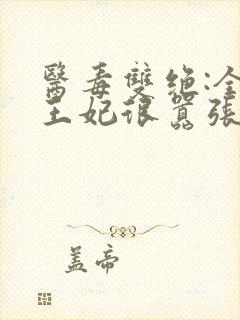 醫毒雙绝:冷
王妃很囂張
盖帝